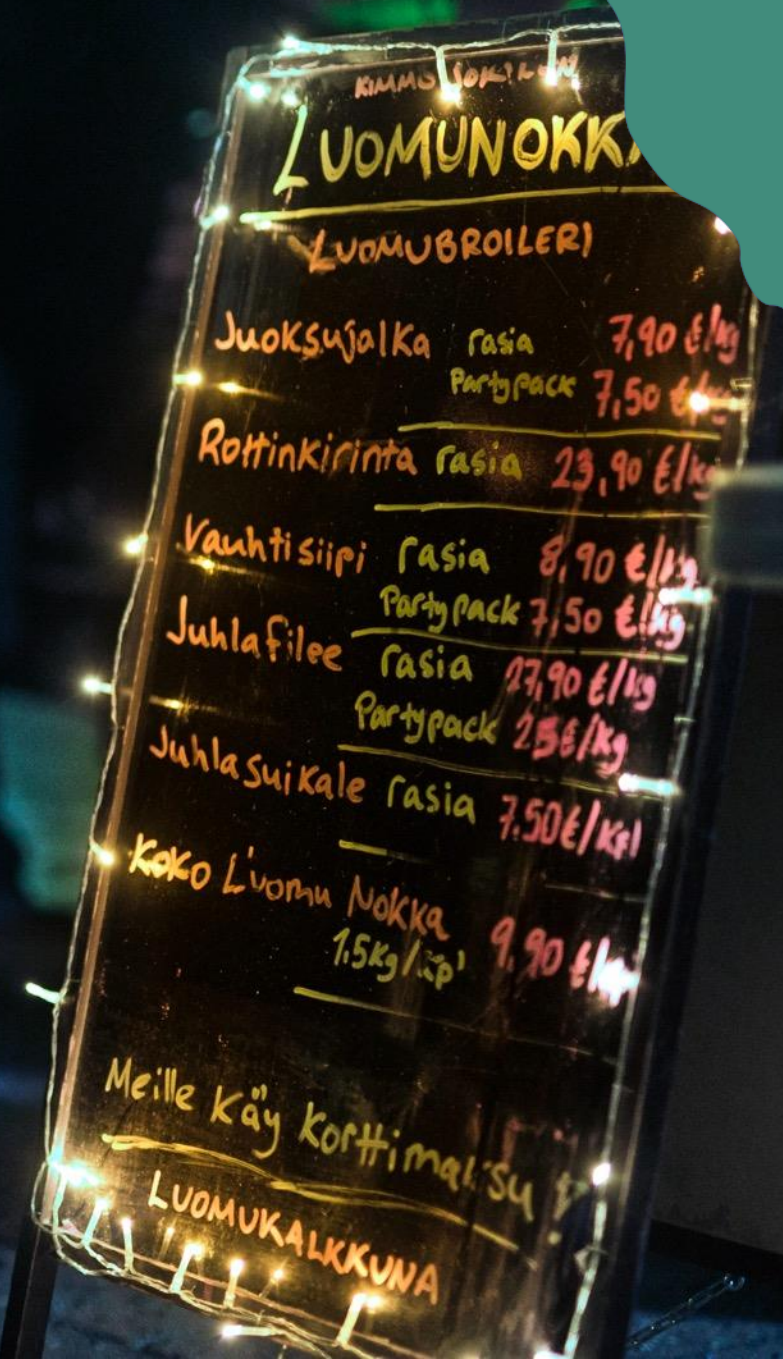 LUOMUNOKK
LUOMUBROILERI
Juoksujalka rasia 7,90 €/kg
Partypack 7,50 €/kg
Rottinkirinta rasia 23,90 €/kg
Vauhtisiipi rasia 8,90 €/kg
Partypack 7,50 €/kg
Juhlafilee rasia 27,90 €/kg
Partypack 25€/kg
Juhlasuikale rasia 7.50€/kpl
Koko Luomu Nokka 9,90
1.5kg/kpl
Meille käy korttimaksu !
LUOMUKALKKUNA